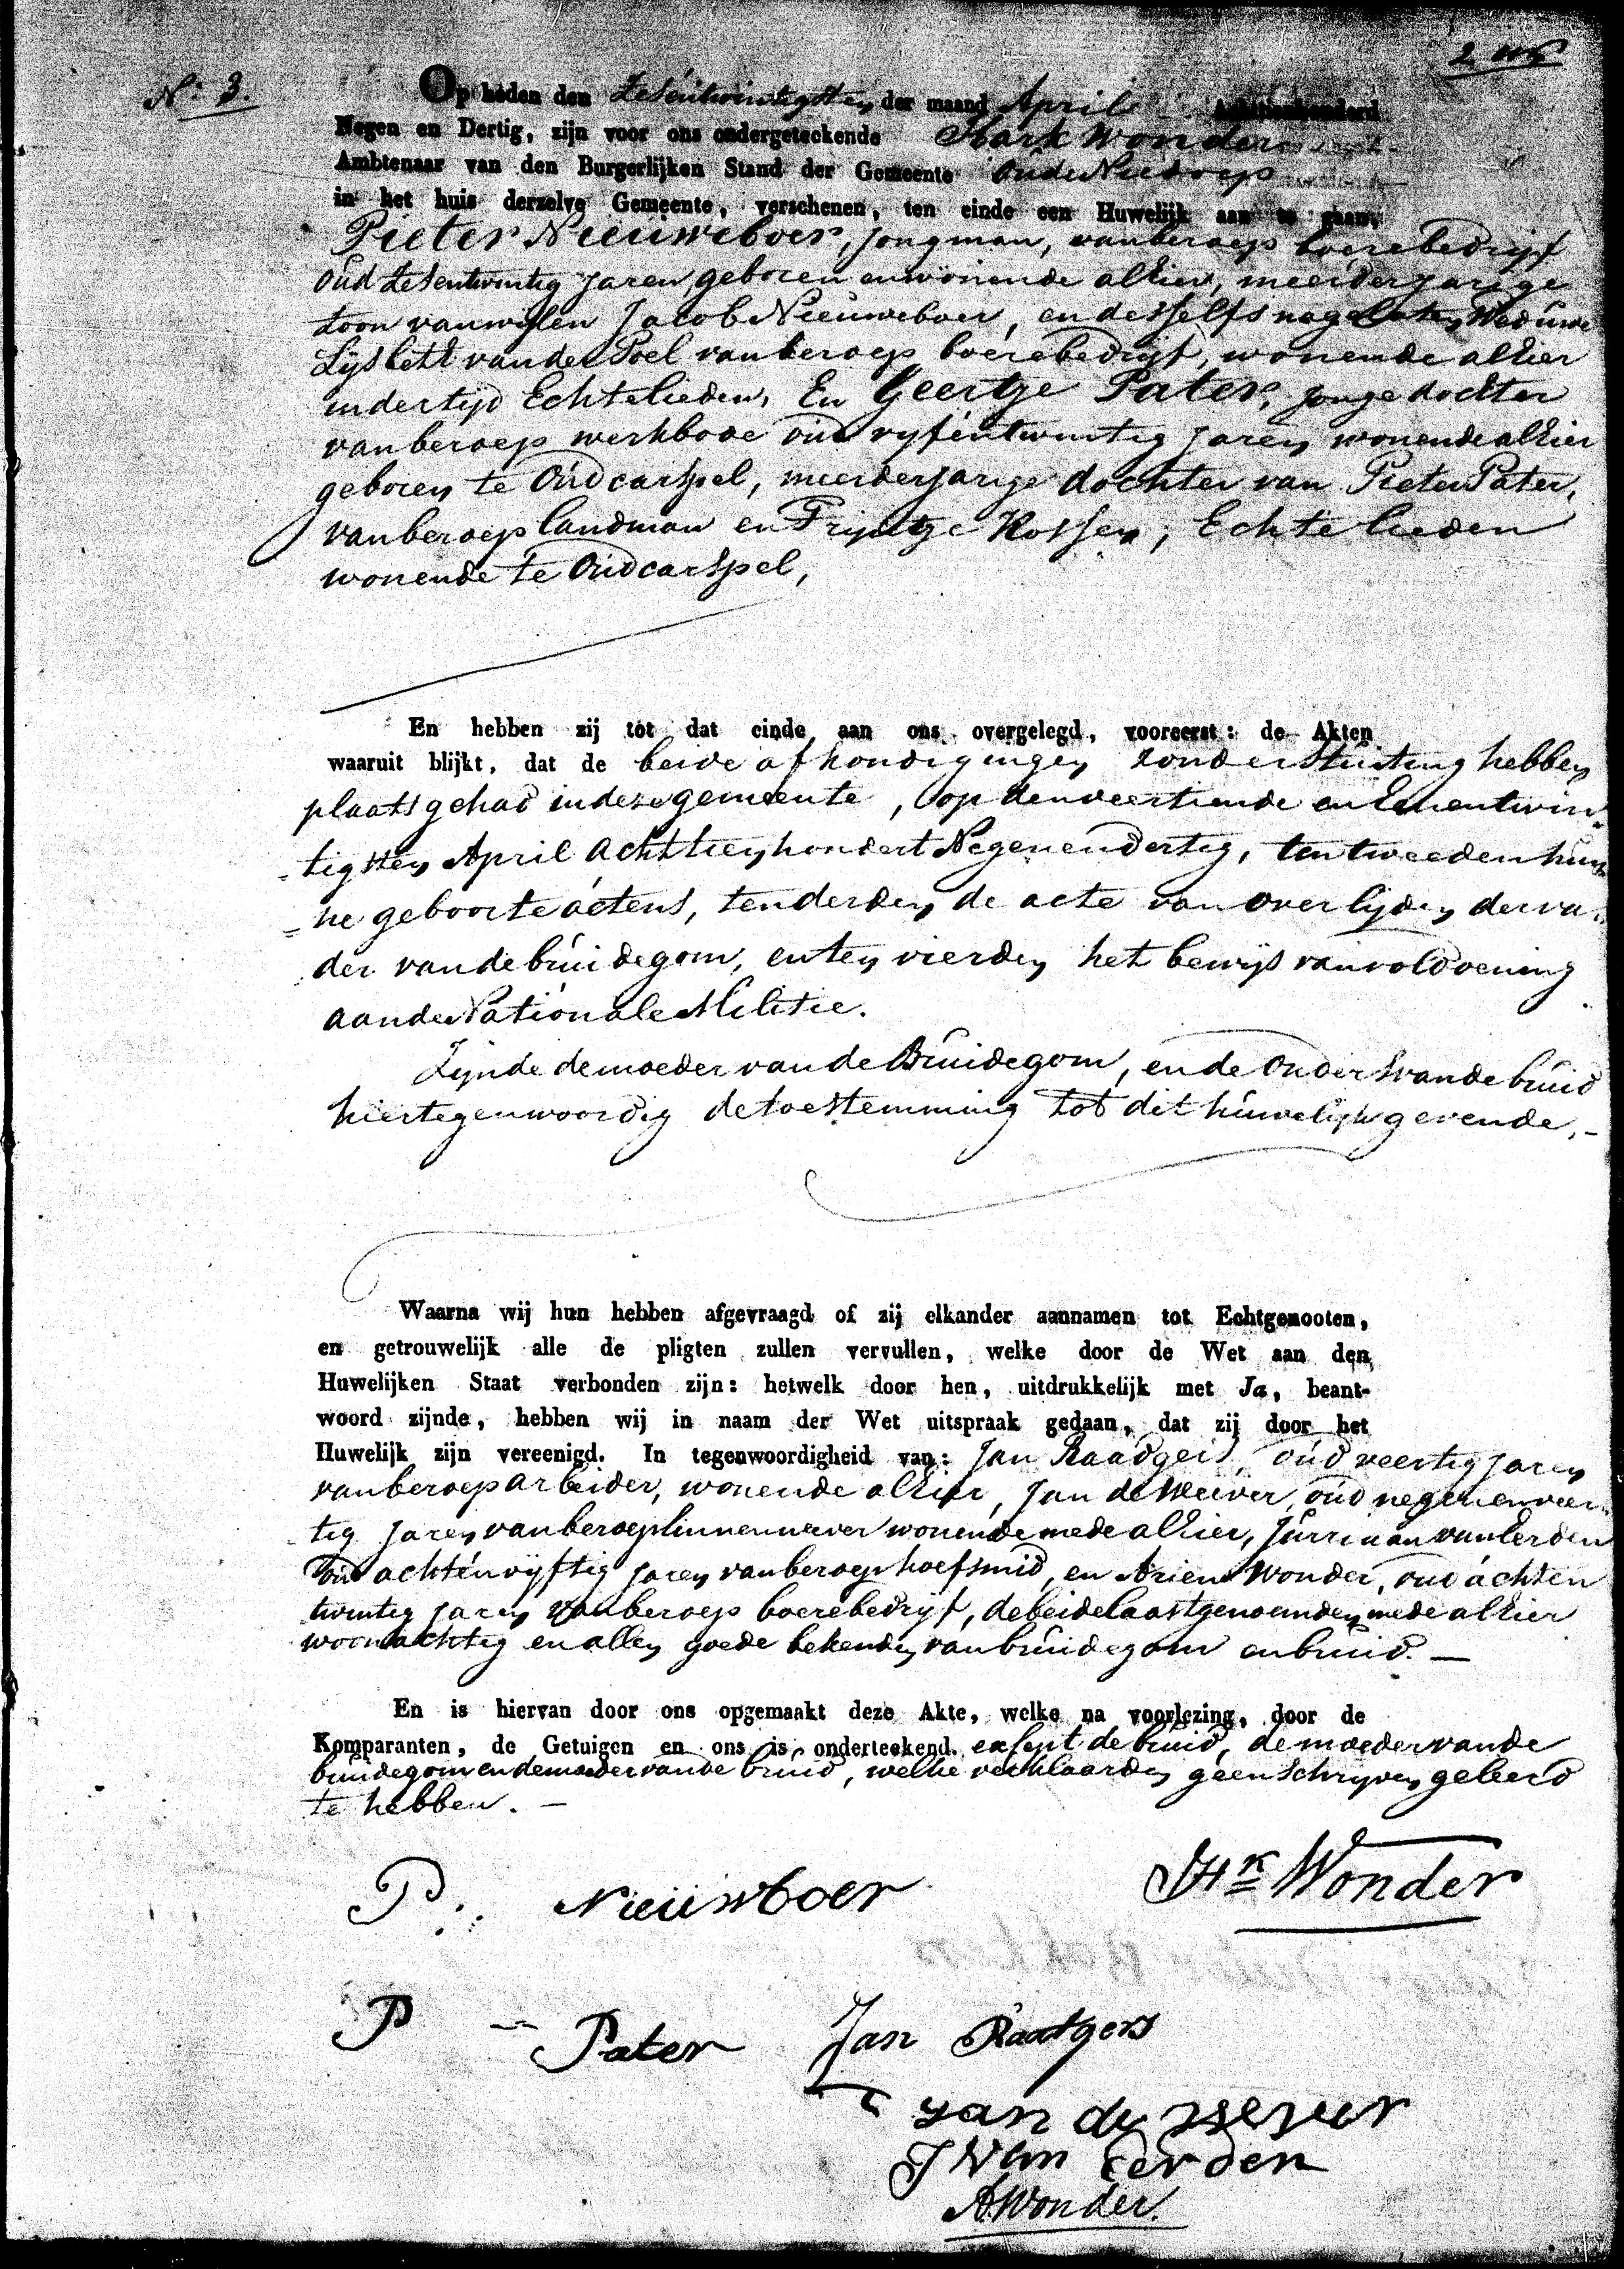 N.o 3.
Op heden den Zesentwintigsten der maand April Achttienhonderd
Negen en Dertig, zijn voor ons ondergeteekende Hark Wonder
Ambtenaar van den Burgerlijken Stand der Gemeente Oude Niedorp
in het huis derzelve Gemeente, verschenen, ten einde een Huwelijk aan te gaan,
Pieter Nieuweboer, jongman, van beroep boerebedrijf
oud Zesentwintig jaren, geboren en wonende alhier, meerderjarige
zoon van wijlen Jacob Nieuweboer, en desselfs nagelaten Weduwe
Lijsbeth van der Poel van beroep boerebedrijf, wonende alhier
indertijd Echtelieden, En Geertje Pater, jonge dochter
van beroep werkbode oud vyfentwintig jaren wonende alhier
geboren te Oudcarspel, meerderjarige dochter van Pieter Pater,
van beroep landman en Trijntje Kossen, Echte lieden
wonende te Oudcarspel,
En hebben zij tot dat einde aan ons overgelegd, vooreerst: de Akten
waaruit blijkt, dat de beide afkondigingen zonder Stuiting hebben
plaats gehad in deze gemeente, op den veertiende en Eenentwin-
tigsten April Achttienhondert Negenendertig, ten tweeden hun-
ne geboorte actens, ten derden de acte van overlijden der va-
der van de bruidegom, en ten vierden het bewijs van voldoening
aan de Nationale Militie.
Zijnde de moeder van de Bruidegom, en de Ouders van de bruid
hier tegenwoordig de toestemming tot dit huwelijk gevende,-
Waarna wij hun hebben afgevraagd of zij elkander aannamen tot Echtgenooten,
en getrouwelijk alle de pligten zullen vervullen, welke door de Wet aan den
Huwelijken Staat verbonden zijn: hetwelk door hen, uitdrukkelijk met Ja, beant-
woord zijnde, hebben wij in naam der Wet uitspraak gedaan, dat zij door het
Huwelijk zijn vereenigd. In tegenwoordigheid van: Jan Raadgers, oud veertig jaren
van beroep arbeider, wonende alhier, Jan de Wever, oud negenenveer-
tig jaren van beroep linnenwever wonende mede alhier, Jurriaan van Eerden
oud achtenvyftig jaren van beroep hoefsmid, en Arien Wonder, oud achten
twintig jaren van beroep boerebedrijf, de beide laastgenoemden mede alhier
woonachtig en allen goede bekenden van bruidegom en bruid. —
En is hiervan door ons opgemaakt deze Akte, welke na voorlezing, door de
Komparanten, de Getuigen en ons is onderteekend. exsept de bruid, de moeder van de
bruidegom en de moeder van de bruid, welke verklaarden geen schryven geleerd
te hebben. —
P. Nieuwboer
Hk Wonder
P Pater
Jan Raatgers
Jan de wever
J Van Eerden
A Wonder.